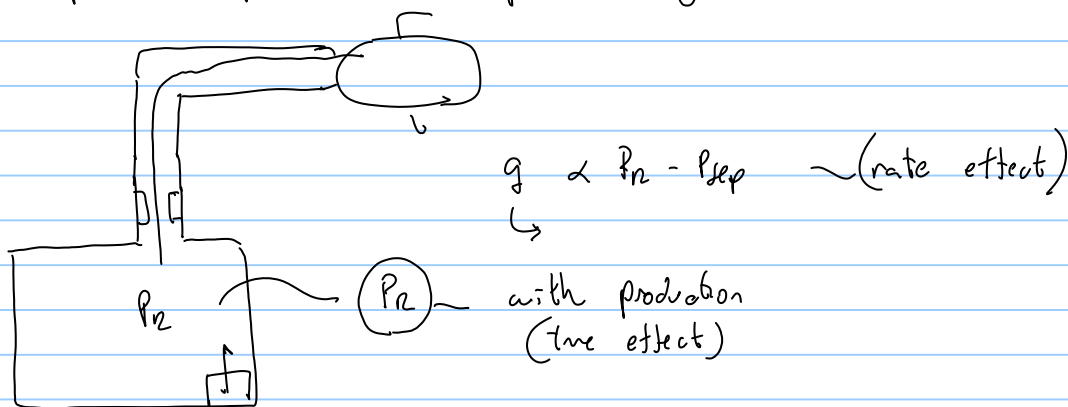 q ∝ PR - Psep ~ (rate effect)
PR
PR
with production
(time effect)